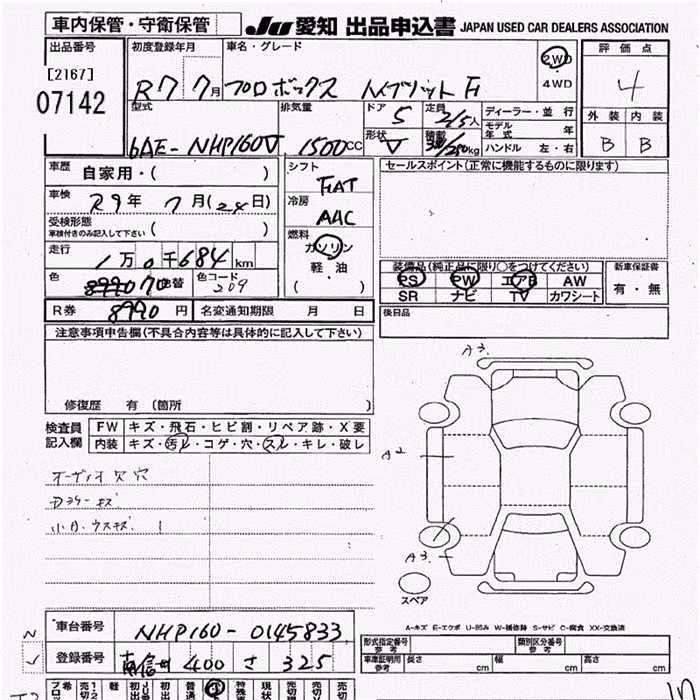 車内保管・守衛保管
JU 愛知 出品申込書 JAPAN USED CAR DEALERS ASSOCIATION
出品番号
[2167]
07142
初度登録年月
R7 7月
車名・グレード
プロボックス ハイブリット F
2WD
4WD
評価点
4
外装 内装
B B
型式
6AE-NHP160V
排気量
1500cc
ドア 5
形状 V
定員 2/5人
積載 kg
ディーラー・並行
モデル年式 年
ハンドル 左・右
車歴 自家用・( )
車検 R9年 7月(24日)
受検形態
車検付きのみ記入して下さい ( )
走行 1万0千684km
色 070 色替
色コード 209
シフト
FAT
冷房
AAC
燃料
ガソリン
軽・油
( )
セールスポイント(正常に機能するものに限ります)
装備品(純正品に限り○をつけてください)
PS PW エアB AW
SR ナビ TV カワシート
新車保証書
有・無
R券 8990円 名変通知期限 月 日
後日品
注意事項申告欄(不具合内容等は具体的に記入して下さい)
修復歴 有(箇所 )
検査員記入欄
FW キズ・飛石・ヒビ割・リペア跡・X要
内装 キズ・汚レ・コゲ・穴・スレ・キレ・破レ
オーディオ欠穴
小凹・ウスキズ
A3
A2
A3
スペア
A-キズ E-エクボ U-凹み W-補修跡 S-サビ C-腐食 XX-交換済
車台番号 NHP160-0145833
登録番号 400 さ 325
型式指定番号 参考
類別区分番号 参考
車庫証明用 参考 長さ cm 幅 cm 高さ cm